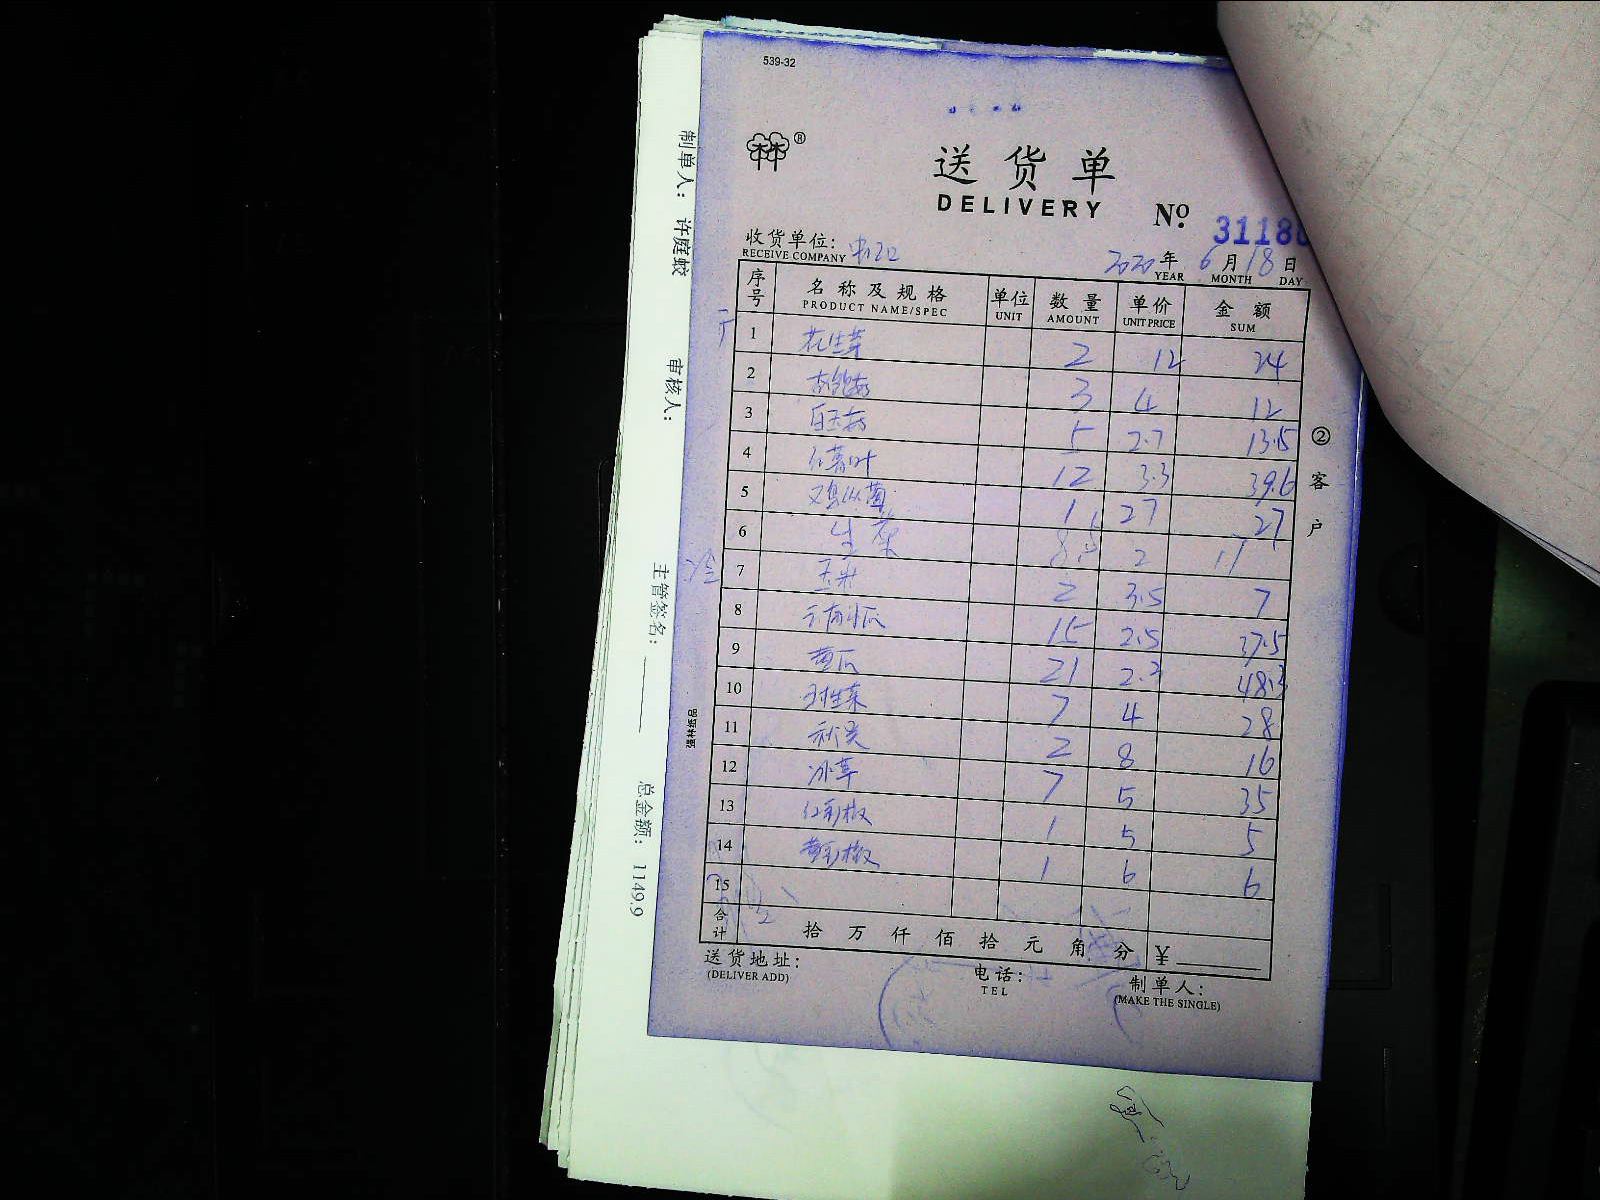 539-32
®
送货单
DELIVERY
Nº 3118
收货单位:
RECEIVE COMPANY
2020年6月18日
YEAR MONTH DAY
序号 名称及规格 单位 数量 单价 金额
PRODUCT NAME/SPEC UNIT AMOUNT UNIT PRICE SUM
1 花生芽 2 12 24
2 3 4 12
3 白玉菇 5 2.7 13.5
4 红薯叶 12 3.3 39.6
5 鸡枞菌 1 27 27
6 生菜 8.5 2 17
7 玉米 2 3.5 7
8 15 2.5 37.5
9 黄瓜 21 2.3 48.3
10 7 4 28
11 秋葵 2 8 16
12 冰草 7 5 35
13 红彩椒 1 5 5
14 黄彩椒 1 6 6
15
合计 拾万仟佰拾元角分 ¥
送货地址:
(DELIVER ADD)
电话:
TEL
制单人:
(MAKE THE SINGLE)
②客户
强林纸品
制单人: 许庭蛟
审核人:
主管签名:
总金额: 1149.9